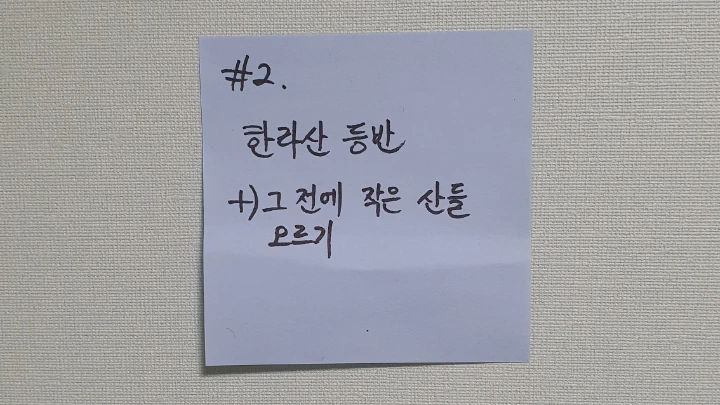 #2.
한라산 등반
+) 그 전에 작은 산들
오르기